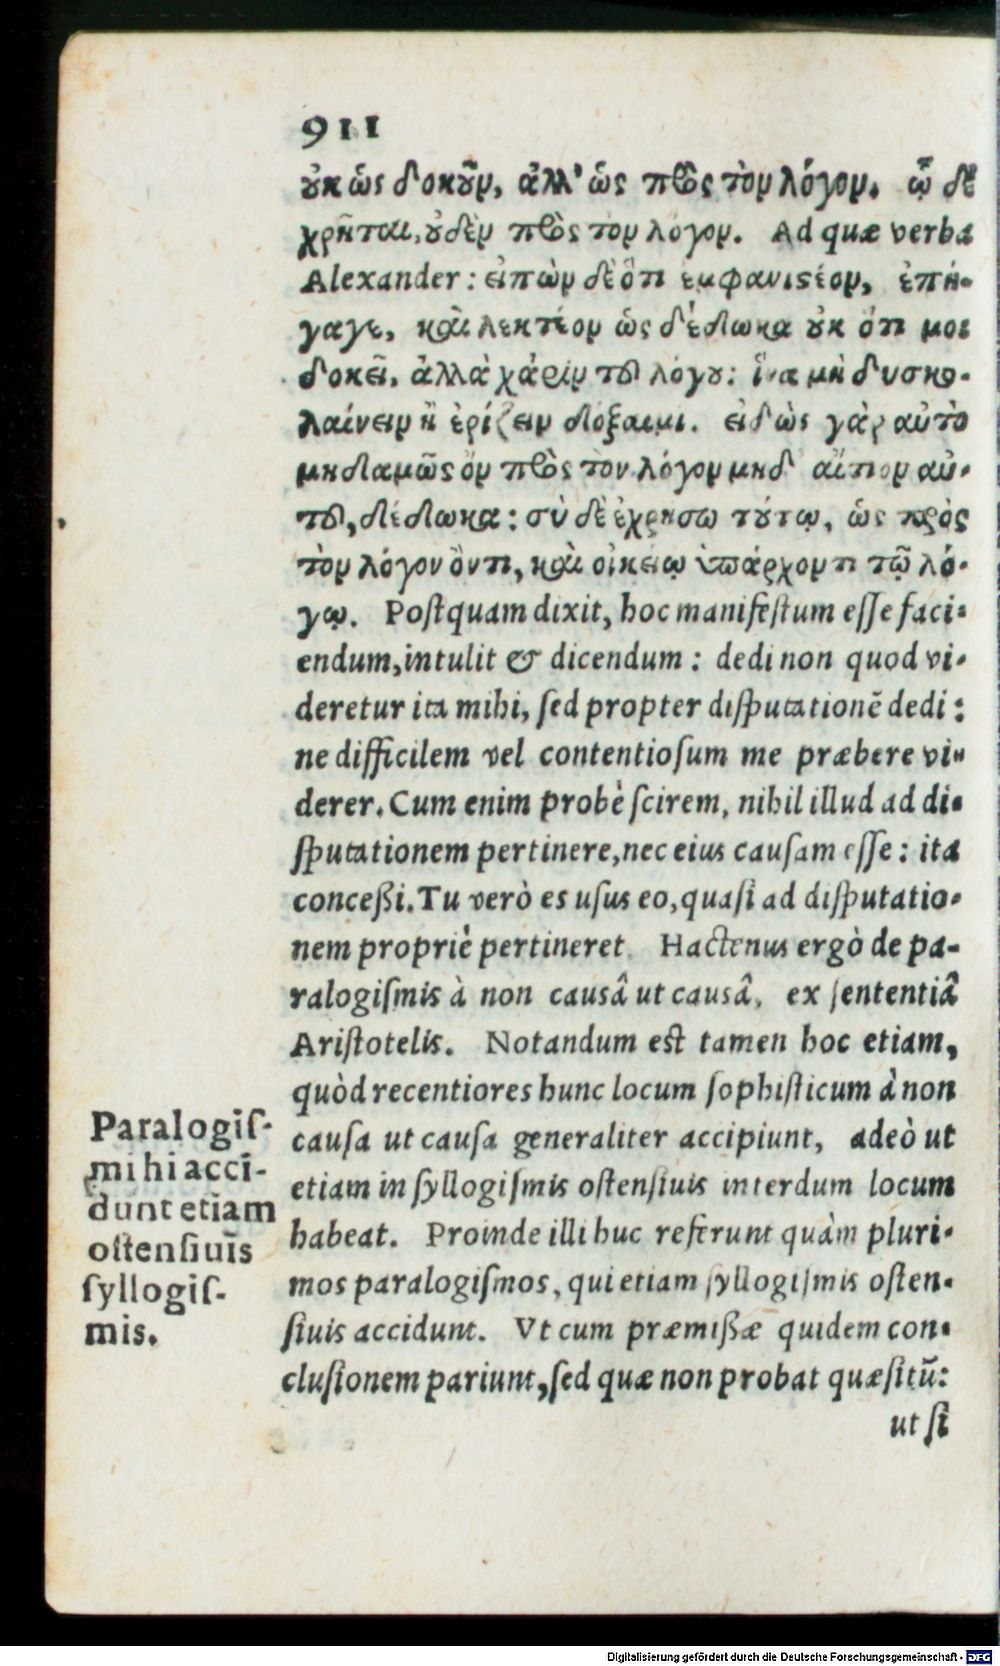 911
οὐκ ὡς δοκοῦν, ἀλλ' ὡς πρὸς τὸν λόγον. ᾧ δὲ
χρῆται, οὐδὲν πρὸς τὸν λόγον. Ad quæ verba
Alexander: εἰπὼν δὲ ὅτι ἐμφανιστέον, ἐπή-
γαγε, καὶ λεκτέον ὡς δέδωκα οὐκ ὅτι μοι
δοκεῖ, ἀλλὰ χάριν τοῦ λόγου: ἵνα μὴ δυσκο-
λαίνειν ἢ ἐρίζειν δόξαιμι. εἰδὼς γὰρ αὐτὸ
μηδαμῶς ὂν πρὸς τὸν λόγον μηδ' αἴτιον αὐ-
τοῦ, δέδωκα: σὺ δὲ ἐχρήσω τούτῳ, ὡς πρὸς
τὸν λόγον ὄντι, καὶ οἰκείῳ ὑπάρχοντι τῷ λό-
γῳ. Postquam dixit, hoc manifestum esse faci-
endum, intulit & dicendum: dedi non quod vi-
deretur ita mihi, sed propter disputationē dedi:
ne difficilem vel contentiosum me præbere vi-
derer. Cum enim probè scirem, nihil illud ad di-
sputationem pertinere, nec eius causam esse: ita
conceßi. Tu verò es usus eo, quasi ad disputatio-
nem propriè pertineret. Hactenus ergò de pa-
ralogismis à non causâ ut causâ, ex sententiâ
Aristotelis. Notandum est tamen hoc etiam,
quòd recentiores hunc locum sophisticum à non
causa ut causa generaliter accipiunt, adeò ut
etiam in syllogismis ostensiuis interdum locum
habeat. Proinde illi huc referunt quàm pluri-
mos paralogismos, qui etiam syllogismis osten-
siuis accidunt. Vt cum præmißæ quidem con-
clusionem pariunt, sed quæ non probat quæsitū:
ut si
Paralogis-
mi hi acci-
dunt etiam
ostensiuis
syllogis-
mis.
Digitalisierung gefördert durch die Deutsche Forschungsgemeinschaft - DFG